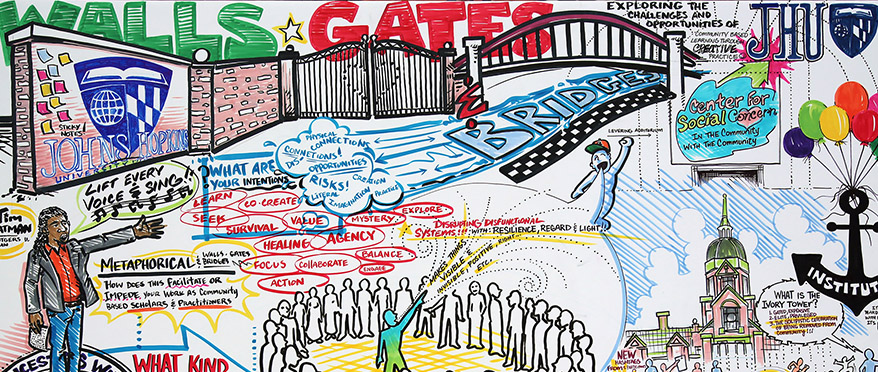 WALLS GATES
EXPLORING THE
CHALLENGES AND
OPPORTUNITIES OF
COMMUNITY BASED
LEARNING THROUGH
CREATIVE
PRACTICE!
JHU
STICKY
NOTES
JOHNS HOPKINS
UNIVERSITY
&
BRIDGES
Center for
Social Concern
IN THE COMMUNITY
WITH THE COMMUNITY
LIFT EVERY
VOICE & SING!!
WHAT ARE
YOUR INTENTIONS
PHYSICAL
CONNECTIONS
CONNECTIONS!
OPPORTUNITIES
RISKS!
CREATION
LITERAL
IMAGINATION
PRACTICE
LEARN
CO-CREATE
SEEK
SURVIVAL
VALUE
MYSTERY
EXPLORE
HEALING
AGENCY
FOCUS
COLLABORATE
BALANCE
ENGAGE
ACTION
DISRUPTING DISFUNCTIONAL
SYSTEMS!!! WITH: RESILIENCE, REGARD & LIGHT!!
MAKES THINGS
VISIBLE &
INVISIBLE, POSITIVE, RIGHT
ETC.
Tim
METAPHORICAL WALLS-GATES
& BRIDGES
HOW DOES THIS FACILITATE OR
IMPEDE YOUR WORK AS COMMUNITY
BASED SCHOLARS & PRACTITIONERS
WHAT KIND
INSTITUT
WHAT IS THE
IVORY TOWER?
1. GATED, EXPENSIVE
2. ELITE, PRIVILEGED
OF BEING REMOVED FROM
COMMUNITY!!!
NEW